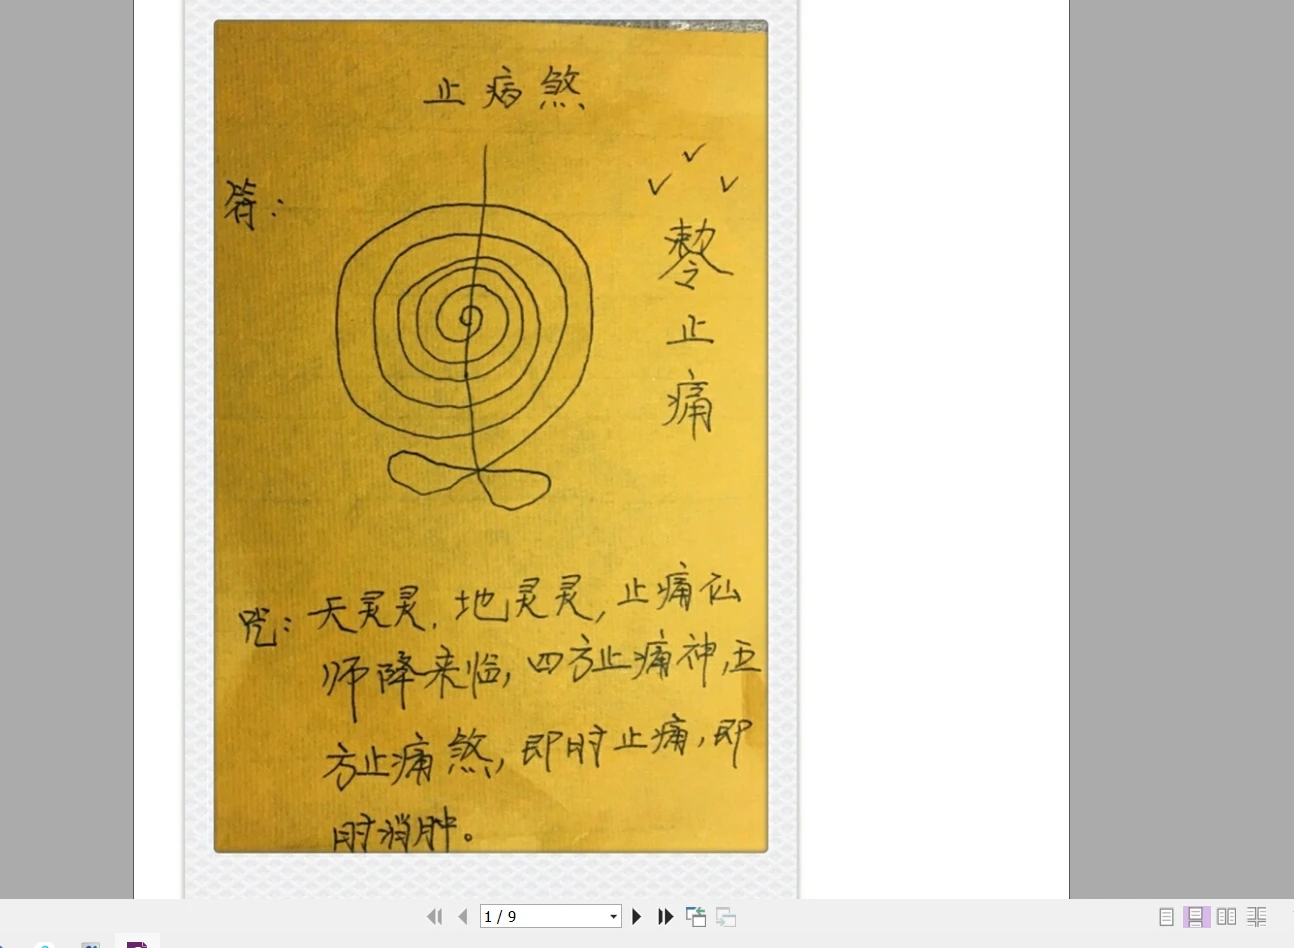 止病煞
符：
敕令
止
痛
咒：天灵灵，地灵灵，止痛仙
师降来临，四方止痛神，五
方止痛煞，即时止痛，即
时消肿。
1 / 9